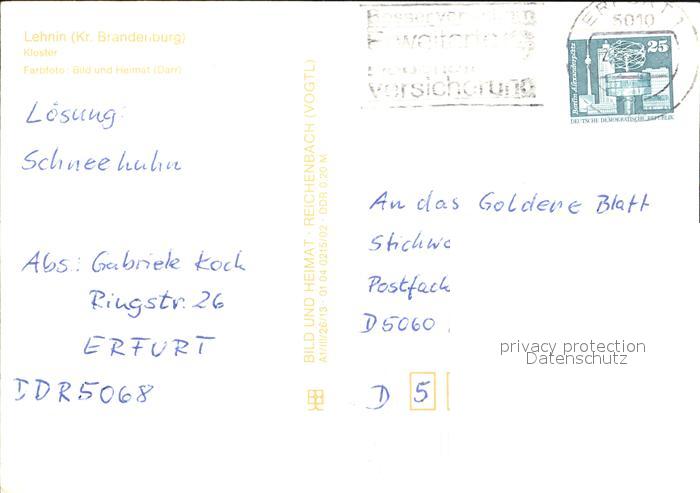 Lehnin (Kr. Brandenburg)
Kloster
Farbfoto: Bild und Heimat (Darr)
Lösung:
Schneehuhn
Abs.: Gabriele Koch
Ringstr. 26
ERFURT
DDR5068
BILD UND HEIMAT · REICHENBACH (VOGTL)
A1/III/26/13 · 01 04 0215/02 · DDR 0,20 M
versicherung
ERFURT 1
5010
25
DEUTSCHE DEMOKRATISCHE REPUBLIK
An das Goldene Blatt
Stichwo
Postfach
D5060
D 5
privacy protection
Datenschutz